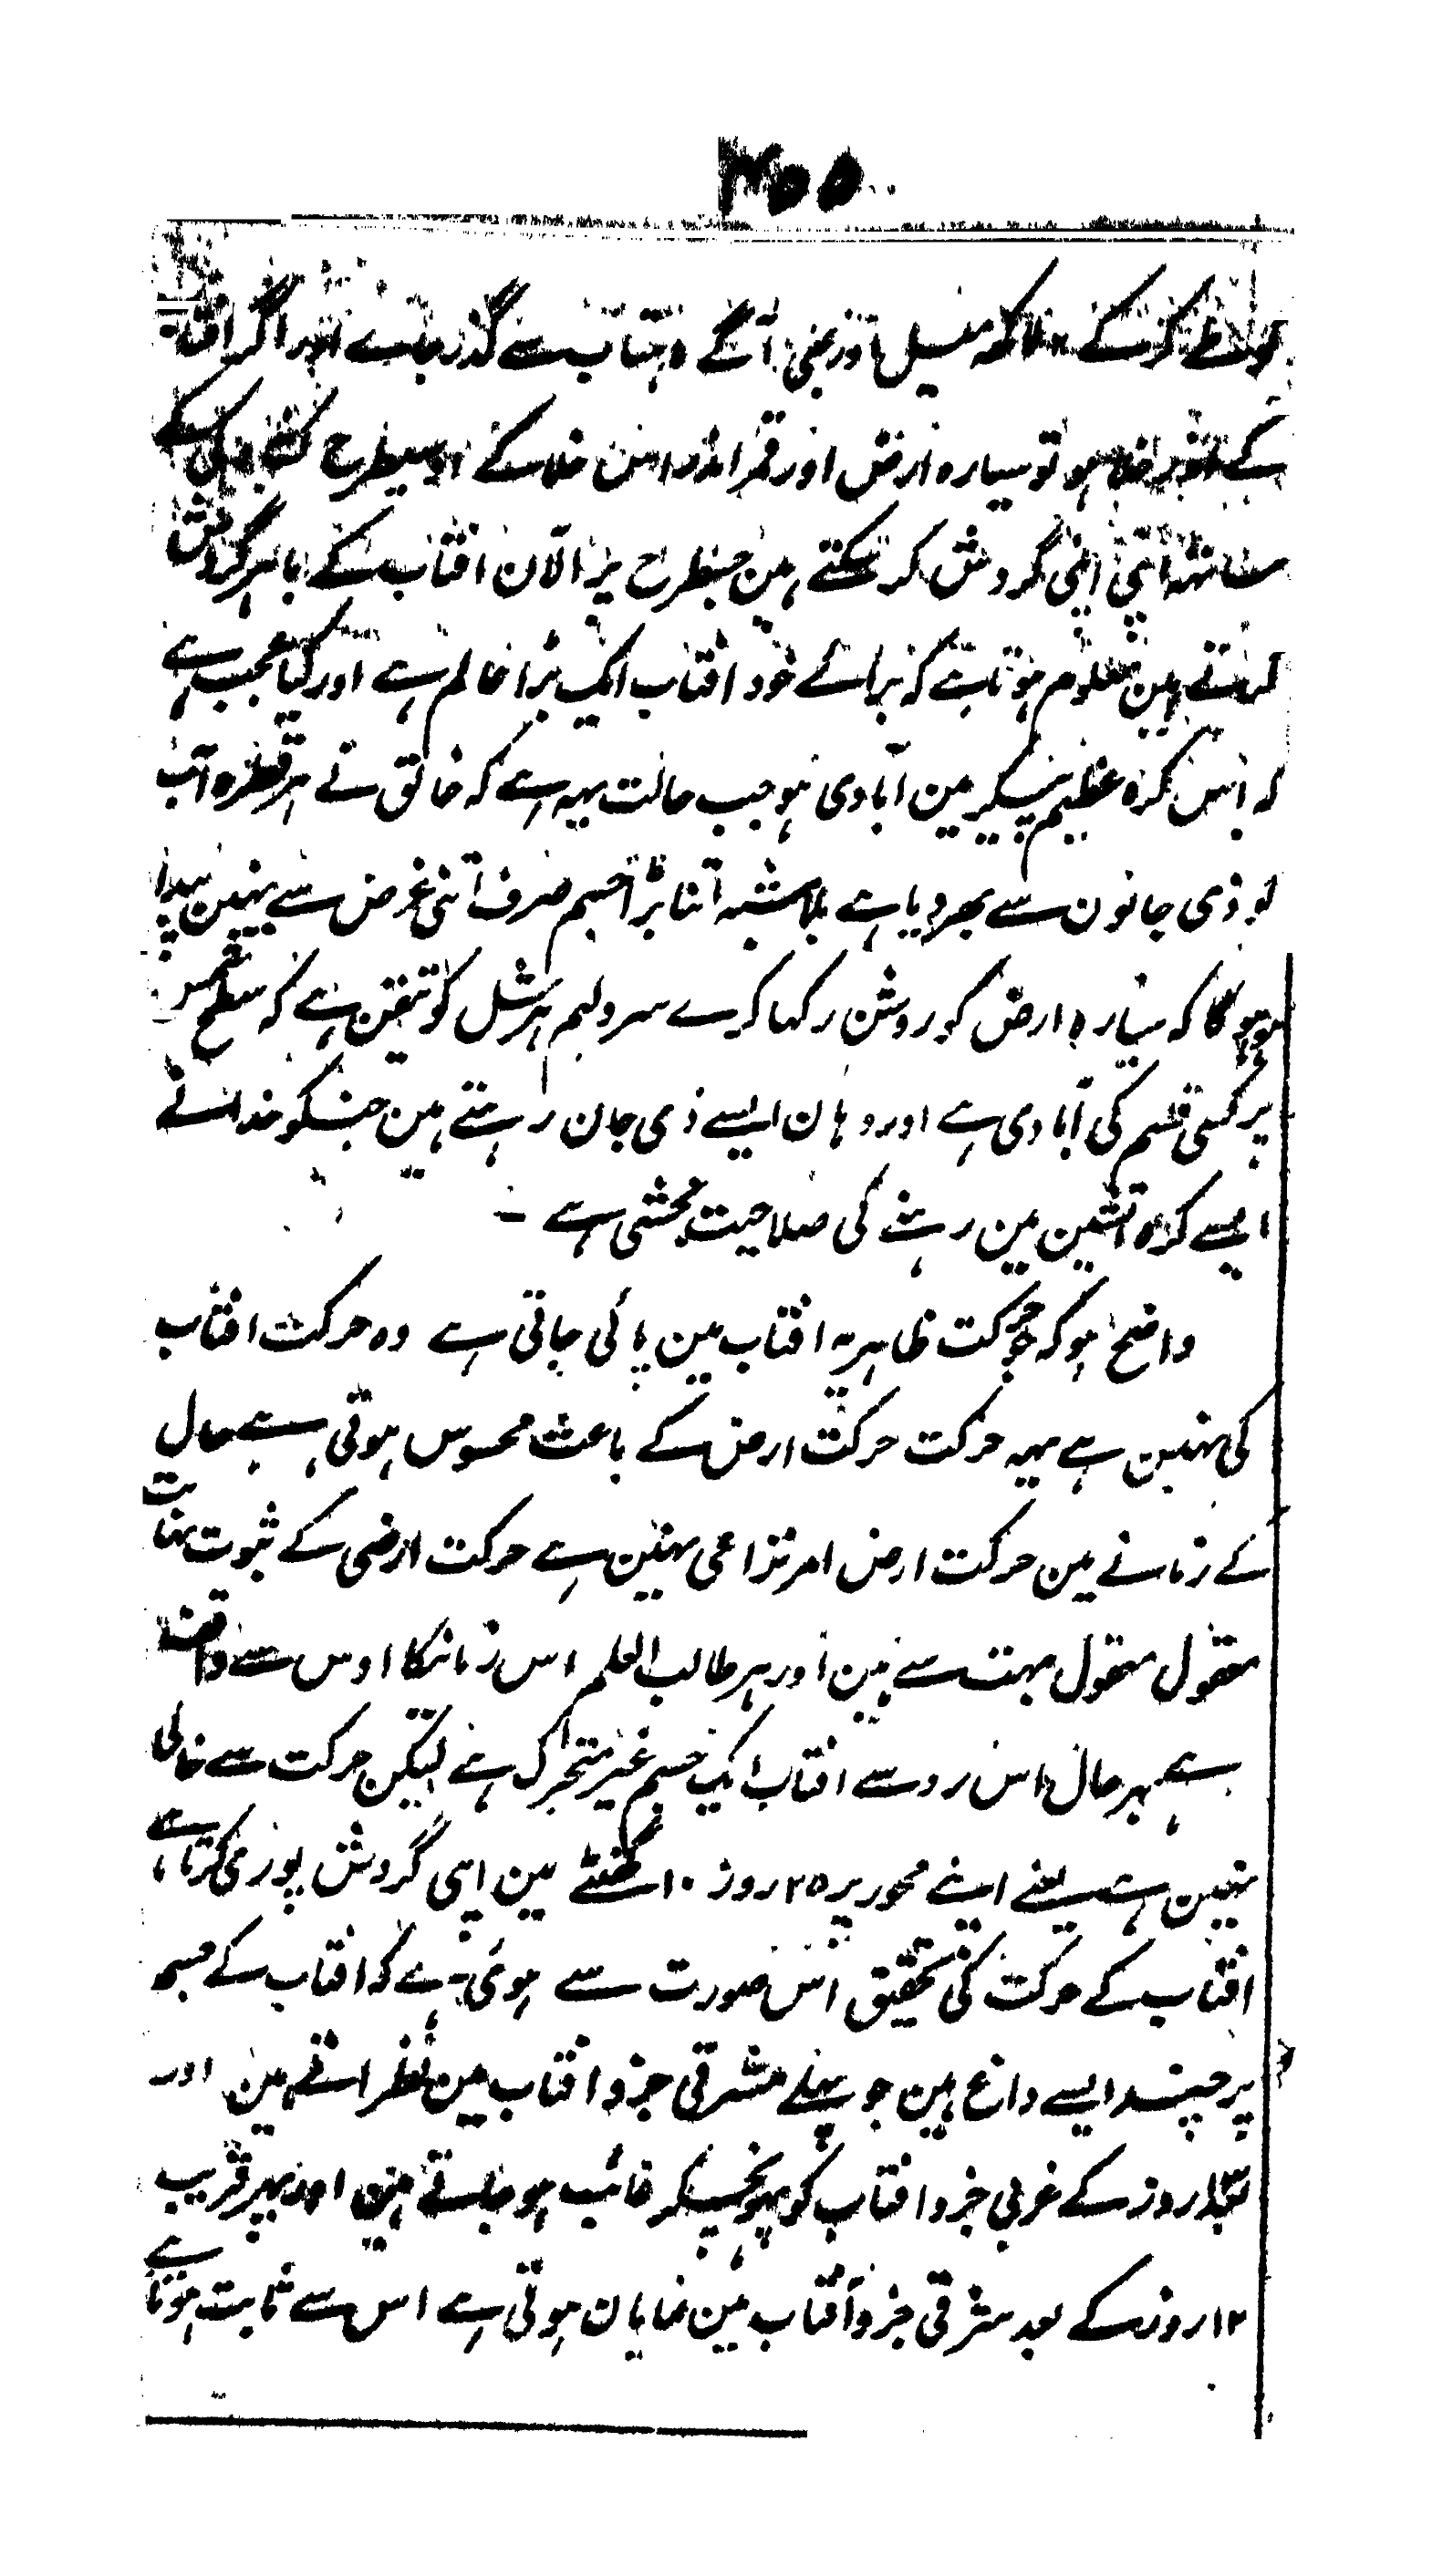 ۳۵۵
کو طے کر کے لاکہ میل اور بھی آگے ماہتاب سے گذر جاے اور اگر افتاب
کے اندر خلا ہو تو سیارہ ارض اور قمر اندر اس خلا کے اوسیطرح
ساتہہ اپنی اپنی گردش کر سکتے ہین جسطرح پر الآن افتاب کے باہر گردش
کرتے ہین معلوم ہوتا ہے کہ براے خود افتاب ایک بڑا عالم ہے اور کیا عجب ہے
کہ اس کرہ عظیم پیکر مین آبادی ہو جب حالت یہہ ہے کہ خالق نے ہر قطرہ آب
کو ذی جانون سے بھر دیا ہے بلا شبہ اتنا بڑا جسم صرف اتنی غرض سے نہین پیدا
ہوا ہوگا کہ سیارہ ارض کو روشن رکہا کرے سر ولیم ہرشل کو تیقن ہے کہ سطح شمس
پر کسی قسم کی آبادی ہے اور وہان ایسے ذی جان رہتے ہین جنکو خدا نے
ایسے کرہ آتشین مین رہنے کی صلاحیت بخشی ہے ۔
واضح ہو کہ جو حرکت ظاہریہ افتاب مین پائی جاتی ہے وہ حرکت افتاب
کی نہین ہے یہہ حرکت حرکت ارض کے باعث محسوس ہوتی ہے حال
کے زمانے مین حرکت ارض امر نزاعی نہین ہے حرکت ارضی کے ثبوت نہایت
معقول معقول بہت سے ہین اور ہر طالب العلم اس زمانیکا اوس سے واقف
ہے بہر حال اس رو سے افتاب ایک جسم غیر متحرک ہے لیکن حرکت سے خالی
نہین ہے یعنے اپنے محور پر ۲۵ روز ۱۰ گھنٹے مین اپنی گردش پوری کرتا ہے
افتاب کے حرکت کی تحقیق اس صورت سے ہوئی ہے کہ افتاب کے جسم
پر چند ایسے داغ ہین جو پہلے مشرقی جزو افتاب مین نظر اتے ہین اور
بعد روز کے غربی جزو افتاب کو پہونچکر غائب ہو جاتے ہین اور پہر قریب
۱۲ روز کے بعد شرقی جزو آفتاب مین نمایان ہوتی ہے اس سے ثابت ہوتا ہے